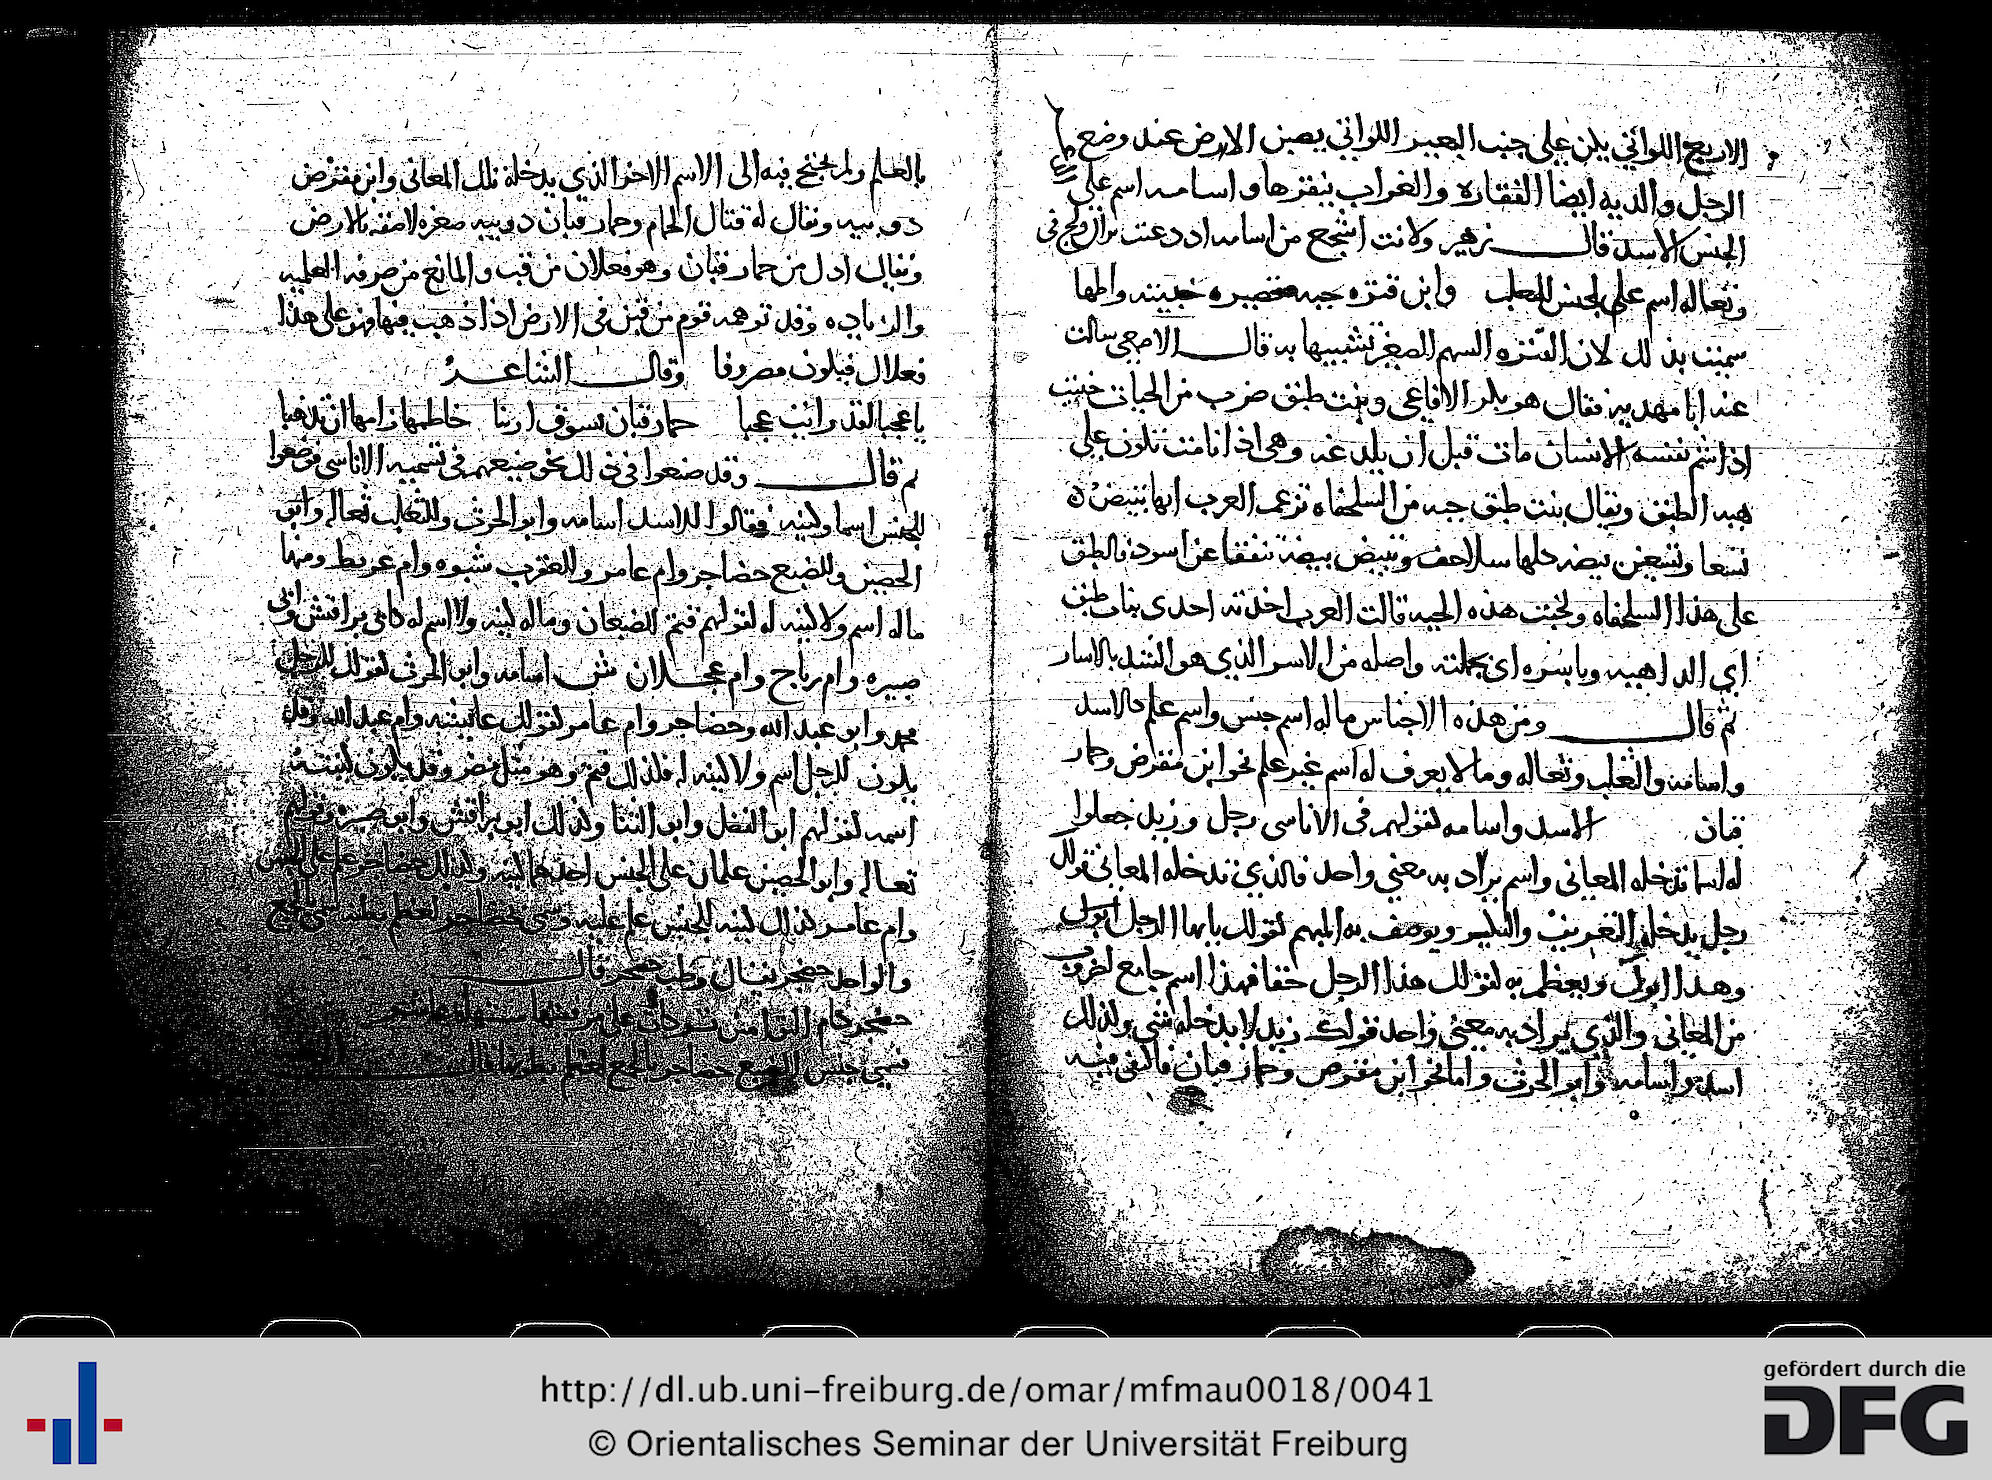 الاربع اللواتي يلين على جنب البعير اللواتي يصبن الارض عند وضع
الرجل والدايه ايضا الفقاره والغراب ينقرها واسامه اسم على
الجنس كالاسد قال زهير ولانت اشجع من اسامه اذ دعيت نزال ولج في
وثعاله اسم على لجنس الثعلب وابن قتره حيه قصيره خبيثه واظنها
سميت بذلك لان القتره السهم الصغير تشبيها به قال الاصمعي سالت
عنه ابا مهديه فقال هو بكر الافاعي وبنت طبق ضرب من الحيات خبيث
اذا شم نفسه الانسان مات قبل ان يلدغه وهي اذا نامت تكون على
هيه الطبق ويقال بنت طبق حيه من السلحفاه تزعم العرب انها تبيض
تسعا وتسعين بيضه كلها سلاحف وتبيض بيضة تنفقا عن اسود فالطبق
على هذا السلحفاه ولخبث هذه الحيه قالت العرب اخذته احدى بنات طبق
اي الداهيه وباسره اي بجملته واصله من الاسر الذي هو الشد بالاسار
ثم قال ومن هذه الاجناس ما له اسم جنس واسم علم كالاسد
واسامه والثعلب وثعاله وما لا يعرف له اسم غير علم نحو ابن مقرض وحمار
قبان الاسد واسامه كقولهم في الاناسي رجل وزيد جعلوا
له اسما تدخله المعاني واسم يراد به معني واحد فالذي تدخله المعاني قولك
رجل يدخله التعريف والتنكير ويوصف به المبهم كقولك يا ايها الرجل
وهذا ابوك ويعظم به كقولك هذا الرجل حقا فهذا اسم جامع لضروب
من المعاني والذي يراد به معنى واحد قولك زيد لا يدخله شي وكذلك
اسد واسامه وابو الحرث واما نحو ابن مقرض وحمار قبان فاكتفي فيه
بالعلم ولم يحتج فيه الى الاسم الاخر الذي يدخله تلك المعاني وابن مقرض
دويبيه ويقال له قتال الحمام وحمار قبان دويبيه صغيره لاصقه بالارض
ويقال اذل من حمار قبان وهو فعلان من قب والمانع من صرفه العلميه
والزياده وقد توهمه قوم من قبن في الارض اذا ذهب فيها فهو على هذا
فعلال فيكون مصروفا وقال الشاعر
يا عجبا لقد رايت عجبا حمار قبان يسوق ارنبا خاطمها زامها ان تذهبا
ثم قال وقد صنعوا في ذلك نحو صنيعهم في تسميه الاناسي فوضعوا
للجنس اسما وكنيه فقالوا للاسد اسامه وابو الحرث وللثعلب ثعاله وابو
الحصين وللضبع حضاجر وام عامر وللعقرب شبوه وام عريط ومنها
ما له اسم ولا كنيه له كقولهم قثم للضبعان وما له كنيه ولا اسم له كابي براقش وابي
صبيره وام رباح وام عجلان ش اسامه وابو الحرث كقولك للرجل
محمد وابو عبد الله وحضاجر وام عامر كقولك عاتيشه وام عبد الله وقد
يكون للرجل اسم ولا كنيه له فكذلك قثم وهو مثل مضر وقد يكون كنيته
اسمه كقولهم ابو الفضل وابو الثنا وكذلك ابو براقش وابو صبيره وقولهم
ثعاله وابو الحصين علمان على الجنس احدهما كنيه وكذلك حضاجر علم على الجنس
وام عامر كذلك كنيه للجنس علم عليه وسمي حضاجر لعظم بطنه
والواحد حضجر يقال وطب حضجر قال
حضجر كام التوامين توكات على مرفقيها مستهله عاشر
فسمي جنس الضبع حضاجر بالجمع لعظم بطنها قال
http://dl.ub.uni-freiburg.de/omar/mfmau0018/0041
© Orientalisches Seminar der Universität Freiburg
gefördert durch die
DFG